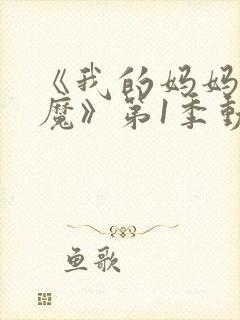 《我的妈妈
魔》第1季動
鱼歌